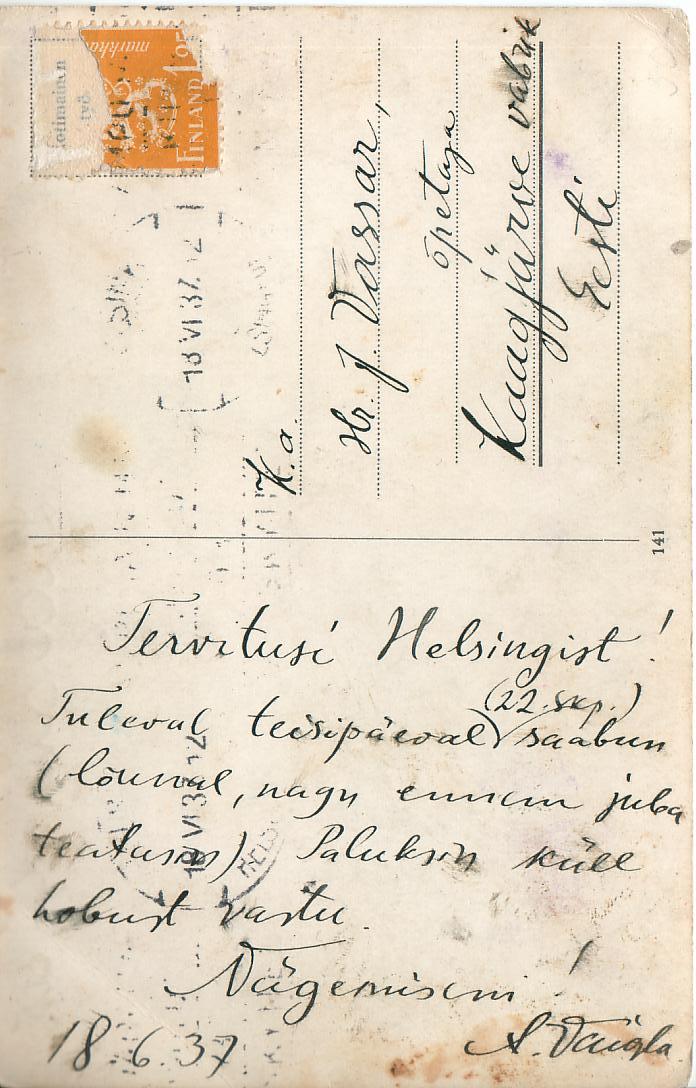 Tervitusi Helsingist!
(22. skp.)
Tuleval teisipäeval saabun
(lõunal, nagu ennem juba
teatasin). Paluksin küll
hobust vastu.
Nägemiseni!
18.6.37 A. Vaigla
K.a.
Hr. J. Vassar,
õpetaja
Kaagjärve vabrik
Eesti
141
FINLAND
markkaa
Kotimainen
työ
18 VI 37 12
18 VI 37 12